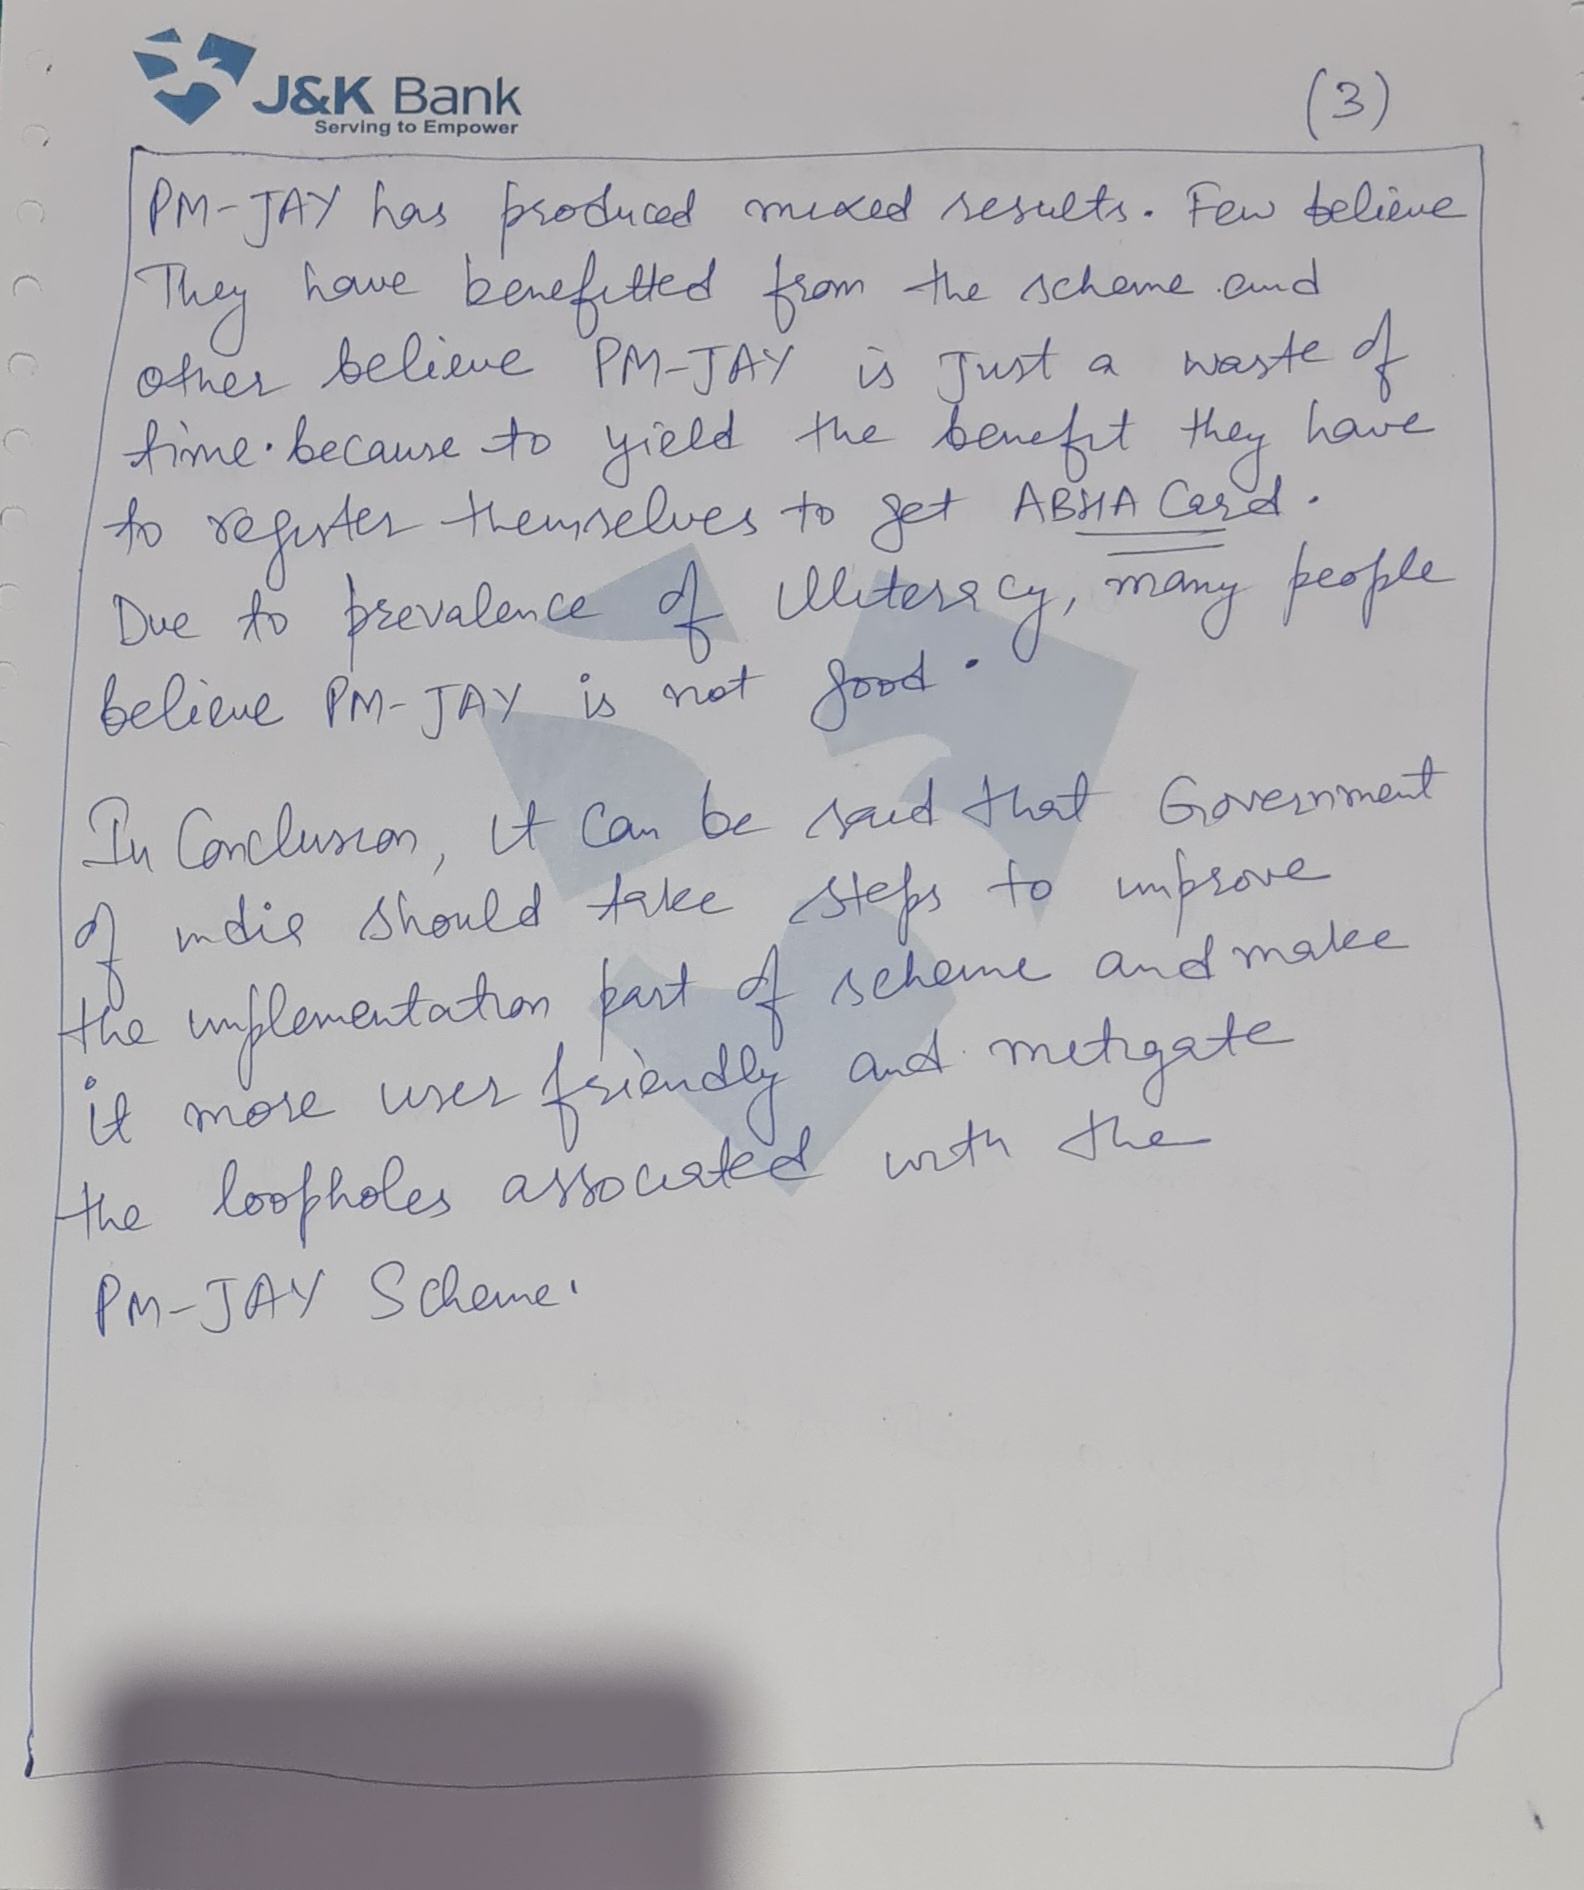 J&K Bank
Serving to Empower
(3)
PM-JAY has produced mixed results. Few believe
They have benefitted from the scheme and
other believe PM-JAY is Just a waste of
time. because to yield the benefit they have
to register themselves to get ABHA Card.
Due to prevalence of illiteracy, many people
believe PM-JAY is not good.
In Conclusion, it Can be said that Government
of india should take steps to improve
the implementation part of scheme and make
it more user friendly and metigate
the loopholes associated with the
PM-JAY Scheme.